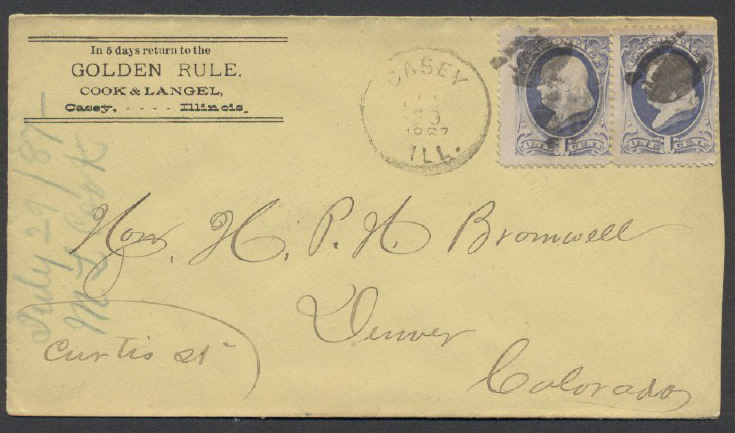 In 5 days return to the
GOLDEN RULE.
COOK & LANGEL,
Casey, - - - - Illinois.
CASEY
1887
ILL.
POSTAGE
ONE CENT
ONE CENT
July 29/87-
Hon. H. P. H. Bromwell
Denver
Colorado
Curtis St